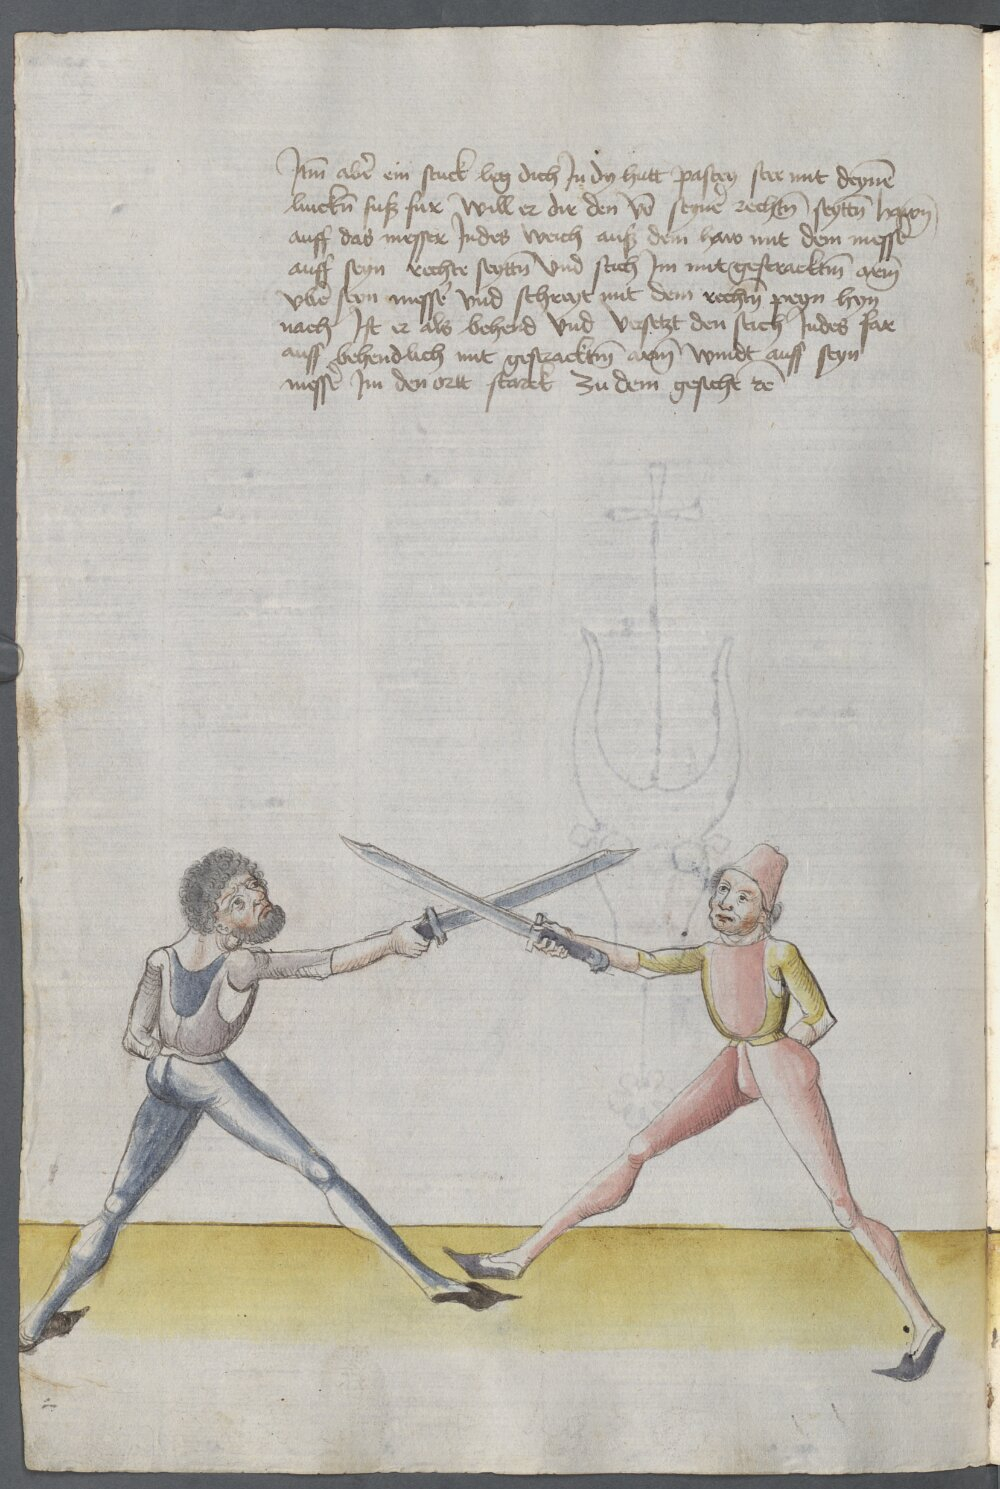 Itm̄ aber ein stuck leg dich In dy hutt pastey stee mit deynē
linckñ fuß fur Will er dir den vō seynē rechtñ seyttñ hawñ
auff das messer Indes weich auß dem haw mit dem messer
auff seyn rechte seyttñ Vnd stich Im mit gestracktm̄ arm̄
vber seyn messer Vnd schreyt mit dem rechtñ peyn hyn
nach Ist er als behend Vnd versetzt den stich Indes far
auff behendlich mit gestracktm̄ arm̄ windt auff seyn
messer Im den ortt starck zu dem gesicht rē